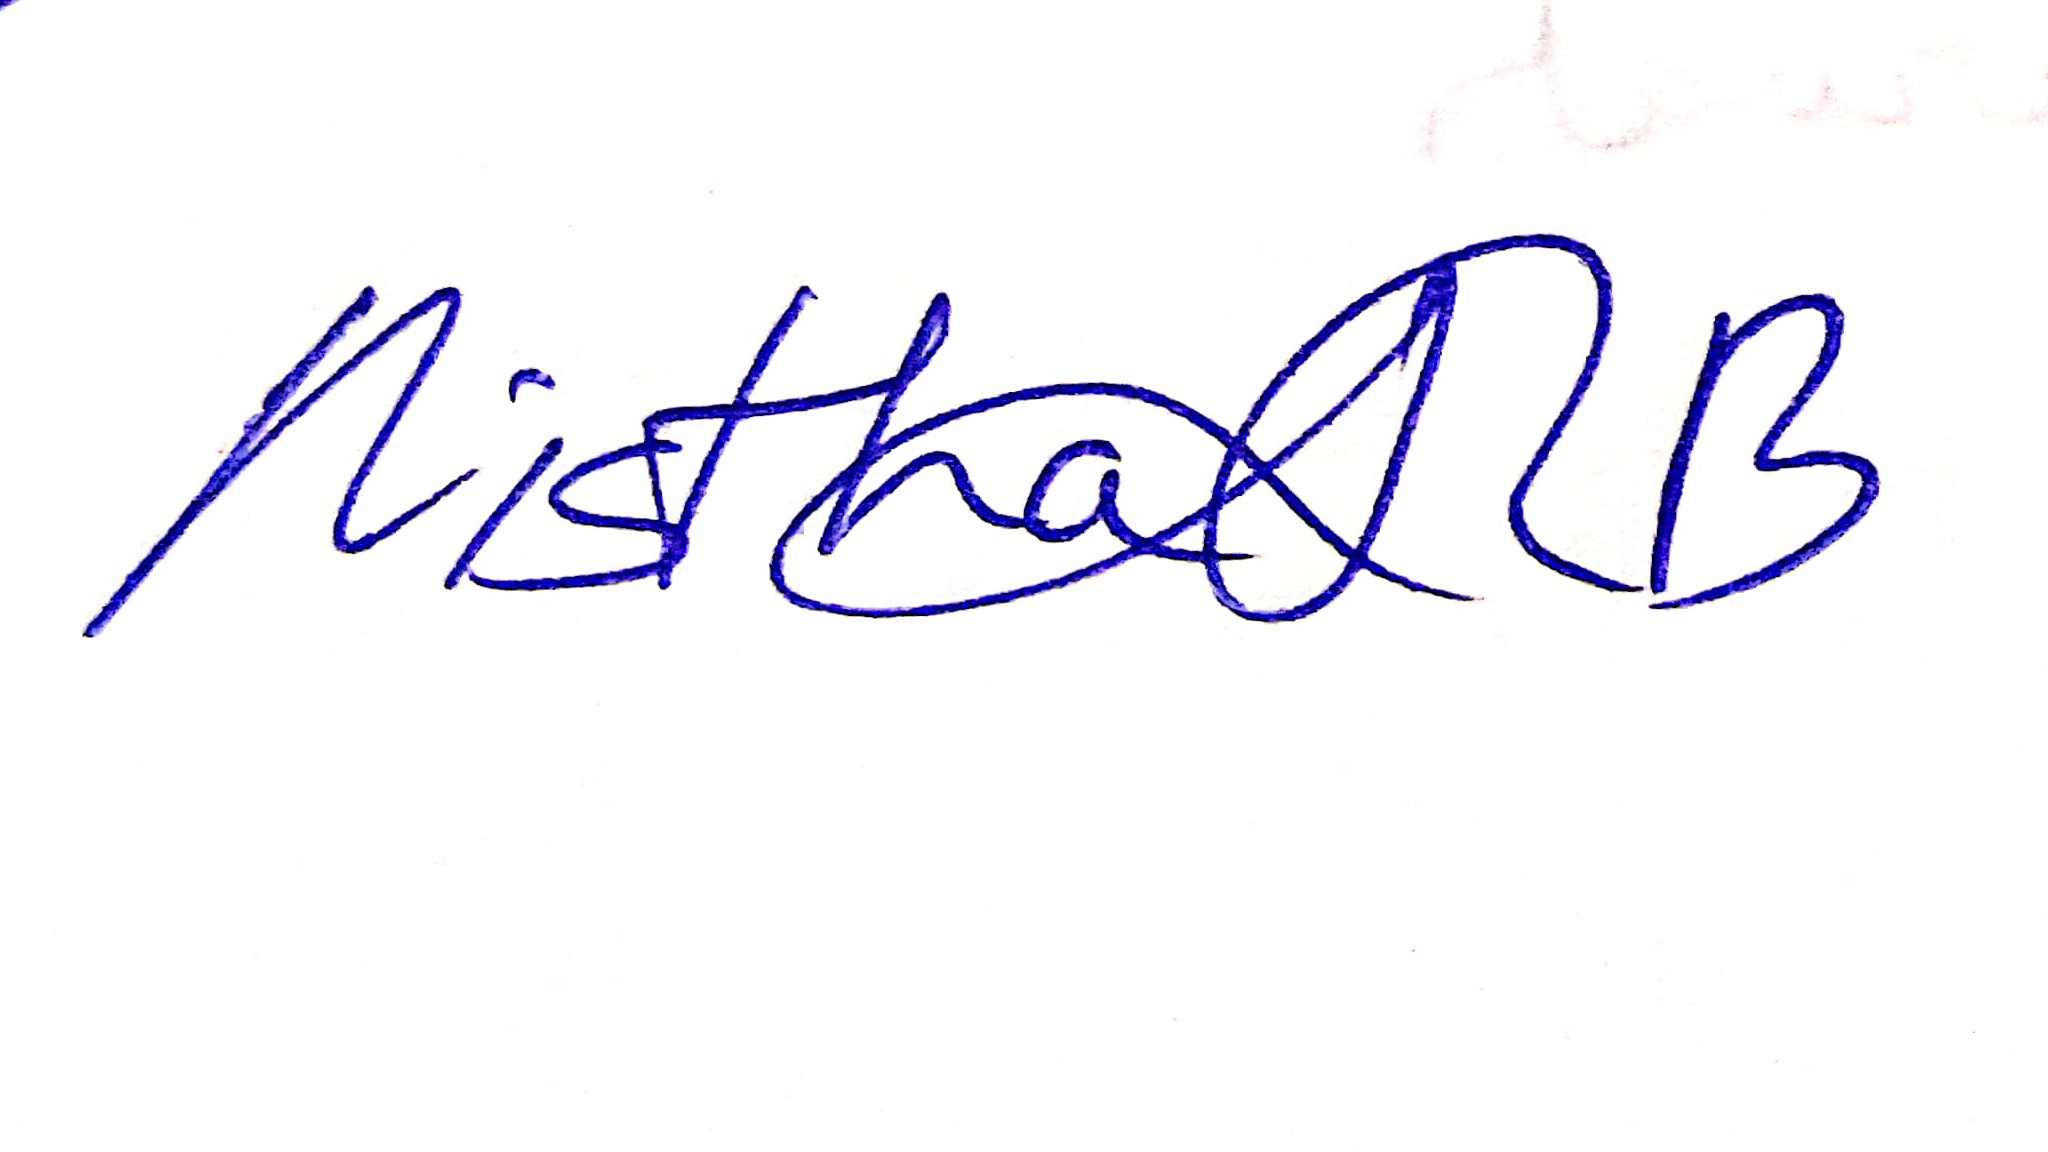 Nistha B